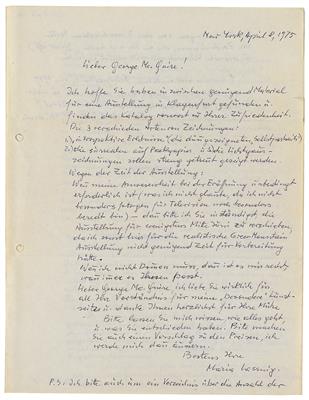 New York, April 8, 1975
Lieber George Mc. Guire!
Ich hoffe Sie haben inzwischen genügend Material
für eine Ausstellung in Klagenfurt gefunden u.
finden das Katalog zu Ihrer Zufriedenheit.
Die 3 verschieden Arten von Zeichnungen:
1), introspektive Erlebnisse, (die dünngezeigten, Selbstportraits)
2) die auf Packpapier u. 3) die
zeichnungen sollen streng getrennt gezeigt werden.
Wegen der Zeit der Ausstellung:
Wenn meine Anwesenheit bei der Eröffnung unbedingt
erforderlich ist, (was ich nicht glaube, da ich nicht
besonders für Television noch besonders
beredt bin) — dann bitte ich Sie inständigst die
Ausstellung für wenigstens Mitte Juni zu verschieben,
da ich sonst hier für die realistische Green Mountain
Ausstellung nicht genügend Zeit für Vorbereitung
hätte.
Wenn ich nicht kommen muss, dann ist es mir recht
wann immer es Ihnen passt.
Lieber George Mc. Guire ich liebe Sie wirklich für
all Ihr Verständnis für meine "besondere" Kunst-
u. danke Ihnen herzlichst für Ihre Mühe.
Bitte lassen Sie mich wissen, wie alles geht,
u. was Sie entschieden haben. Bitte machen
Sie auch einen Vorschlag zu den Preisen, ich
werde mich dann äussern.
Bestens Ihre
Maria Lassnig.
P.S: Ich bitte auch um ein Verzeichnis über die Anzahl der